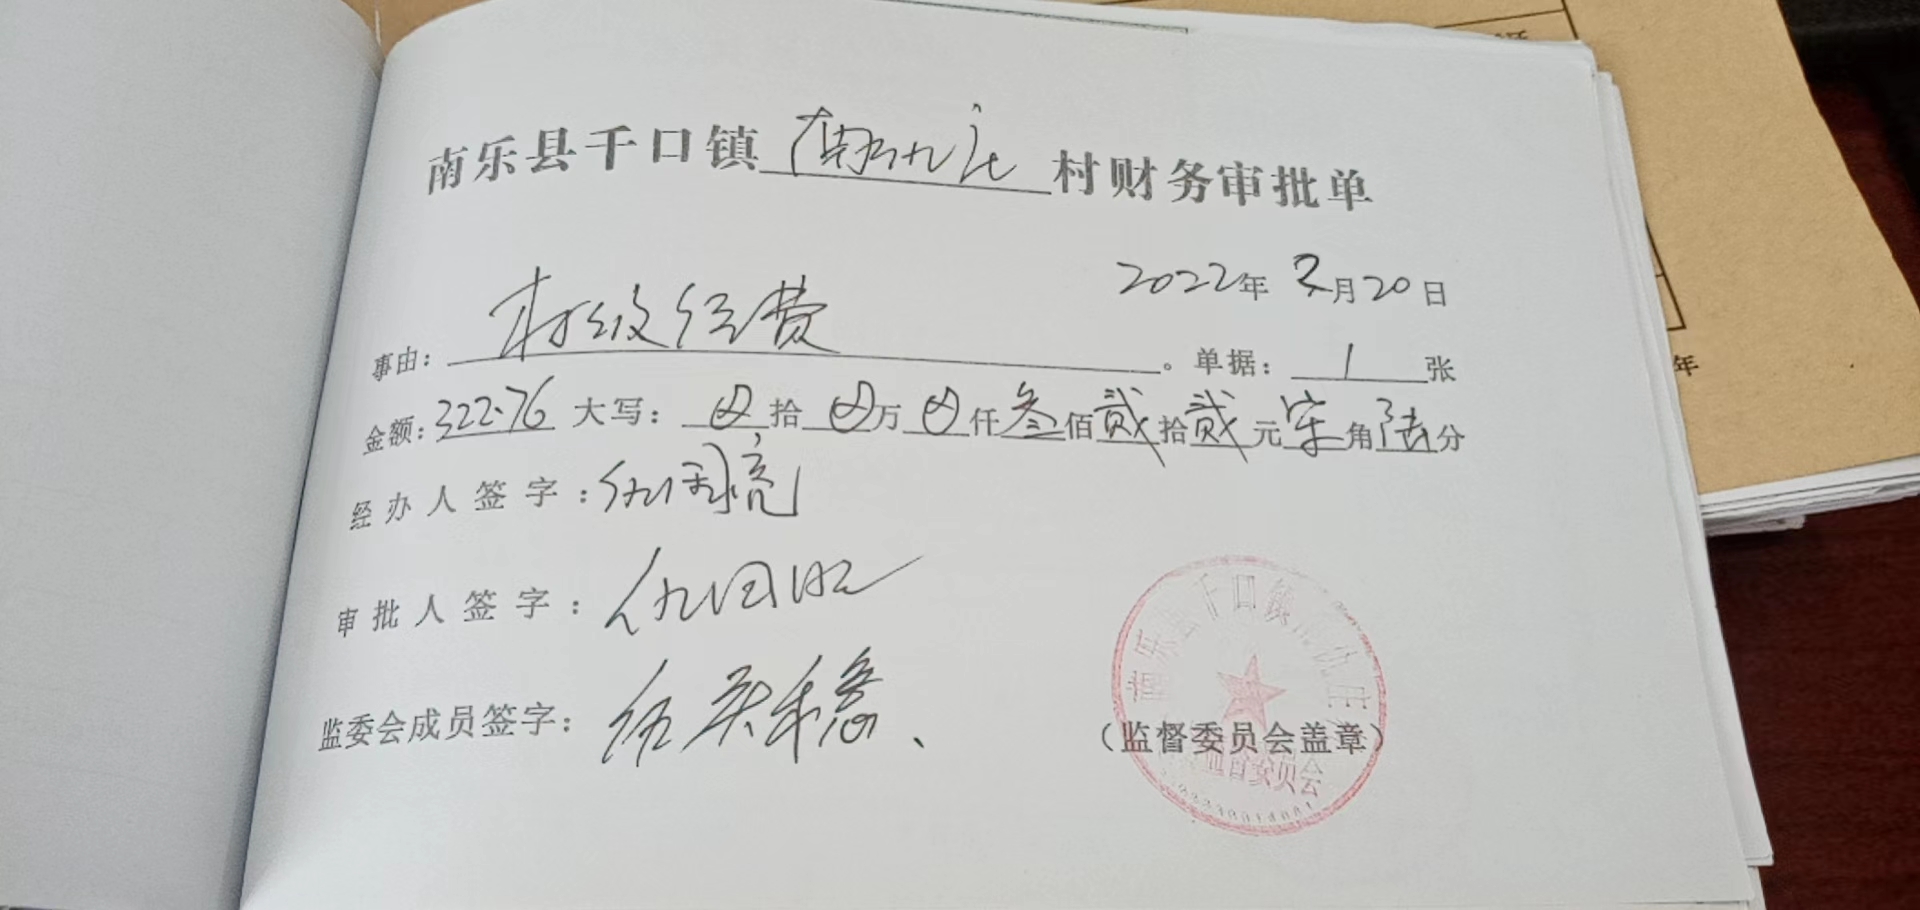 南乐县千口镇南仇庄村财务审批单
2022年3月20日
事由：村级经费。单据：1张
金额：322.76 大写：⊗拾⊗万⊗仟叁佰贰拾贰元柒角陆分
经办人签字：仇国亮
审批人签字：仇国
监委会成员签字：
（监督委员会盖章）
南乐县千口镇南仇庄
监督委员会
年